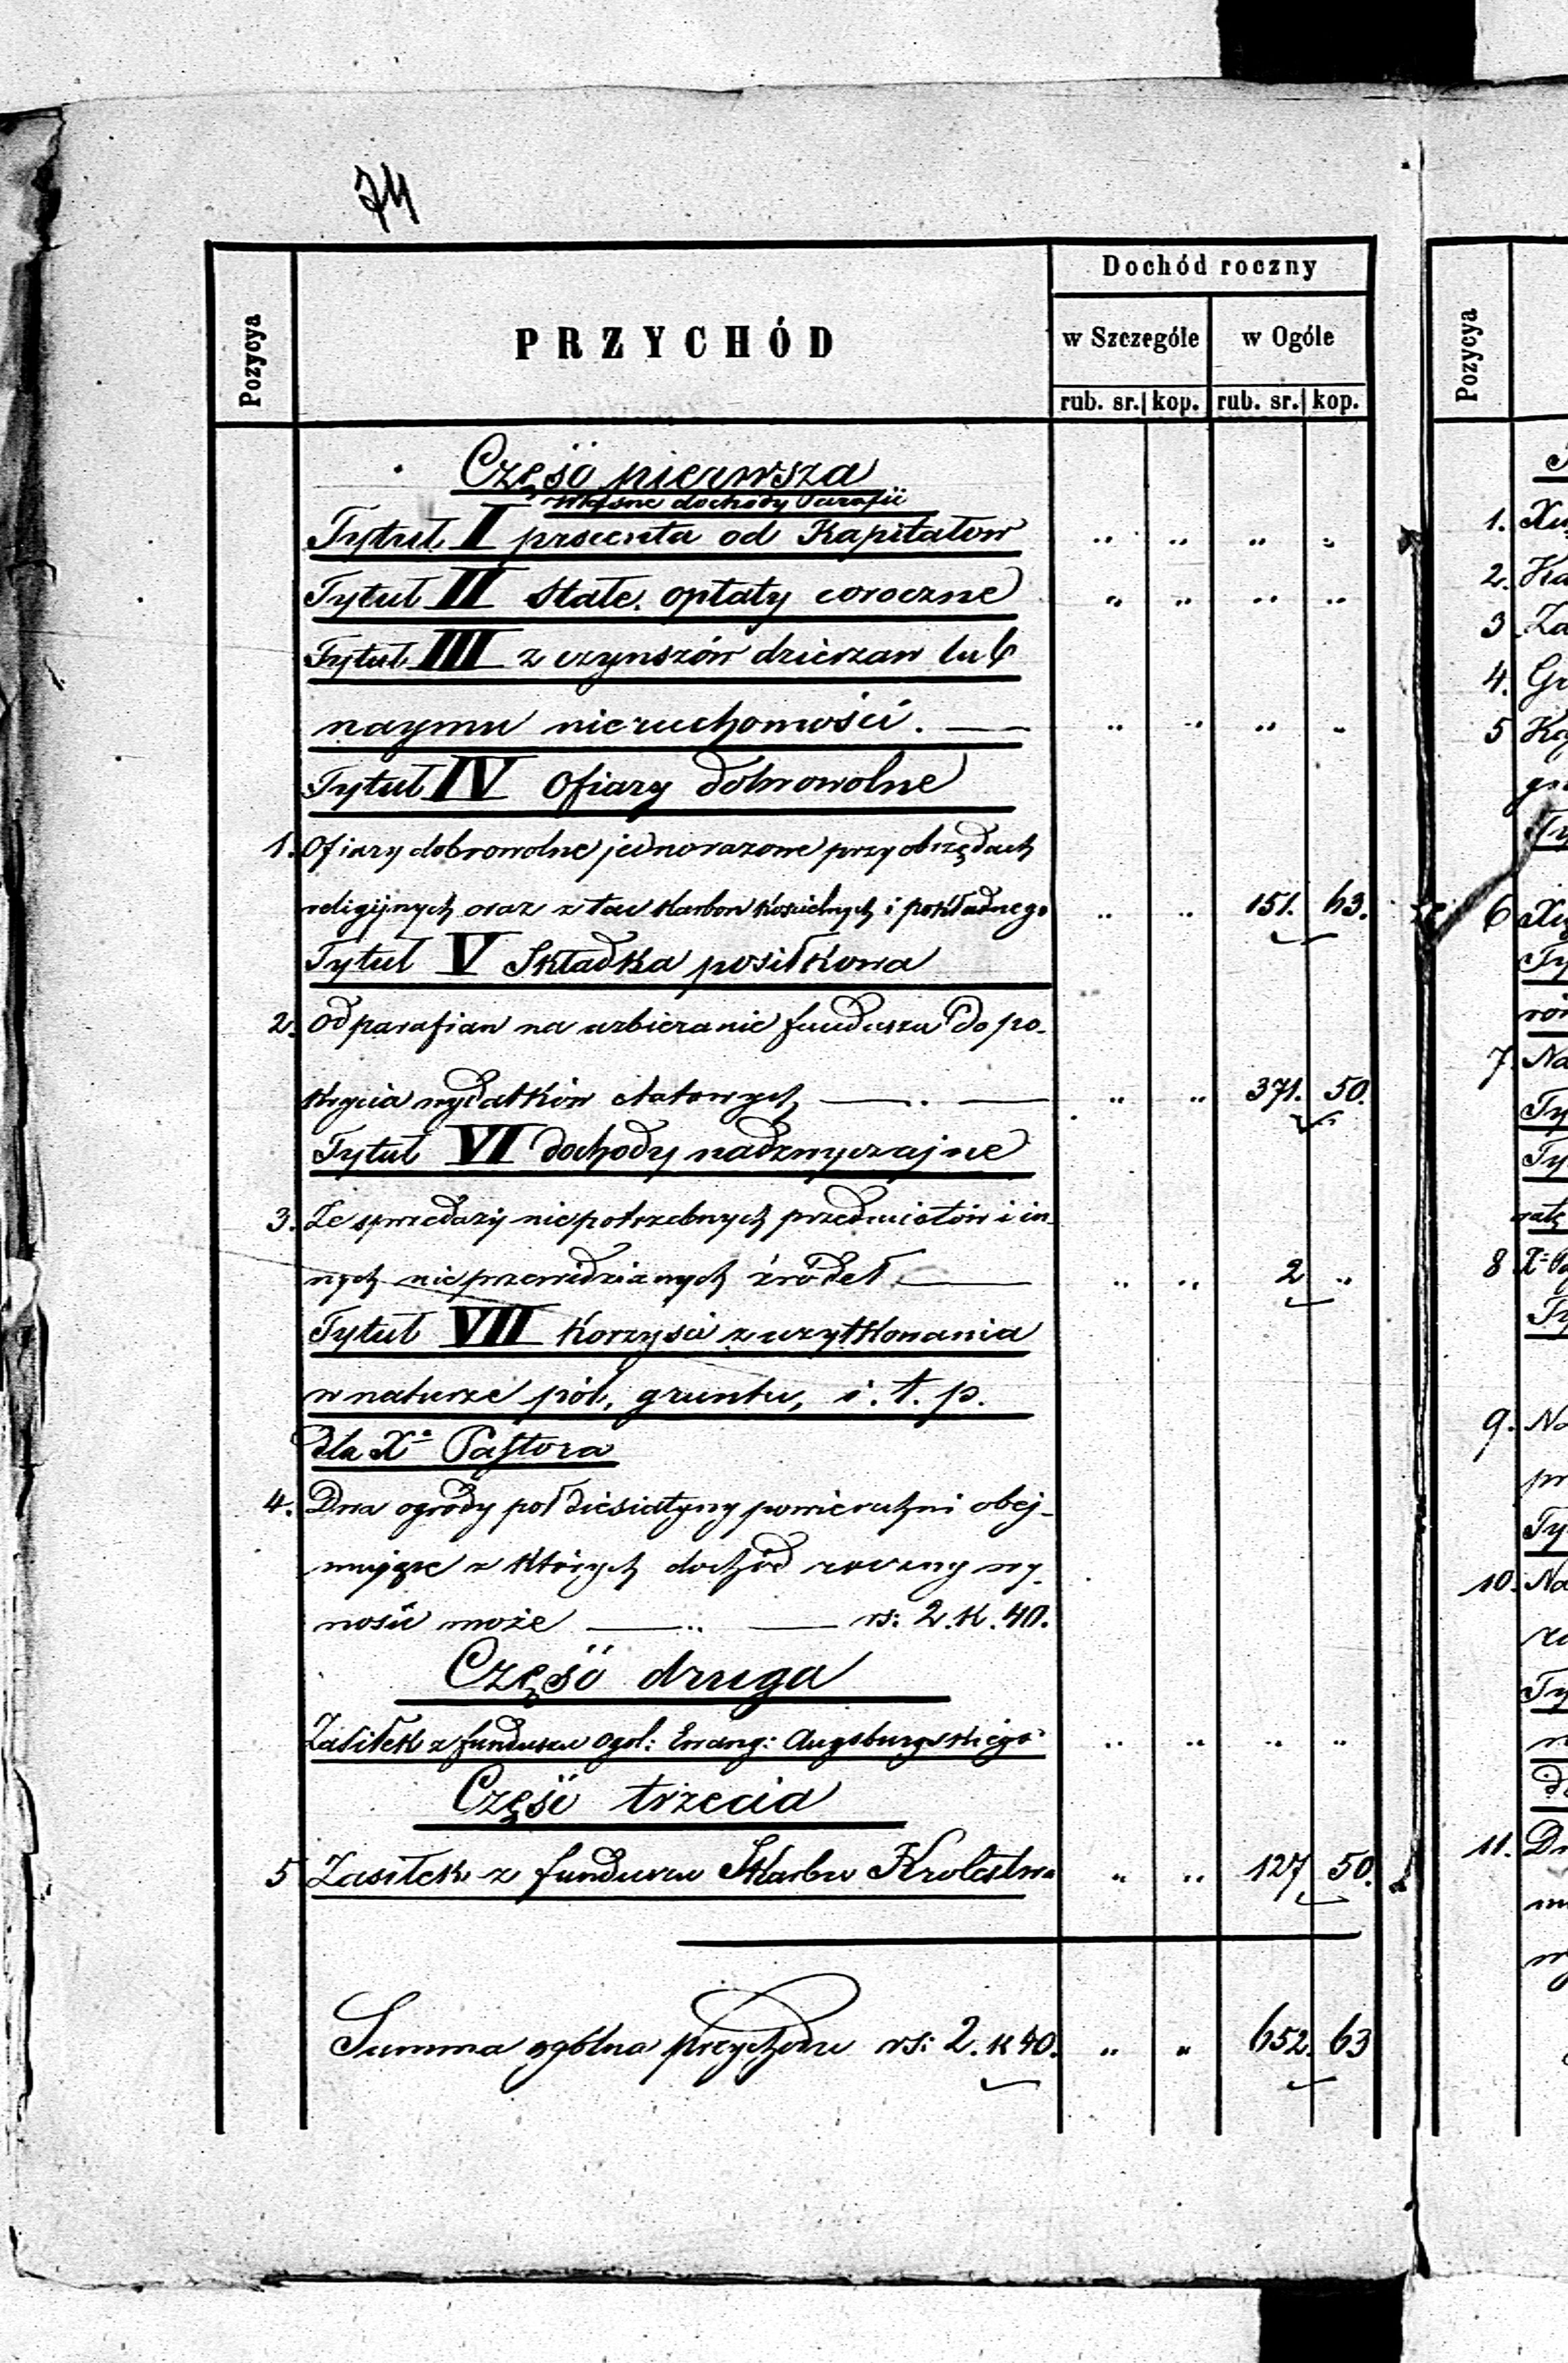 74
Pozycya
PRZYCHÓD
Dochód roczny
w Szczególe w Ogóle
rub. sr. kop. rub. sr. kop.
Część pierwsza
Własne dochody Parafii
Tytuł I procenta od Kapitałow " " " "
Tytuł II Stałe opłaty coroczne " " " "
Tytuł III z czynszów dzierzaw lub
naymu nieruchomości. — " " " "
Tytuł IV Ofiary dobrowolne
1. Ofiary dobrowolne jednorazowe przy obrzędach
religijnych oraz z tac skarbon Kościelnych i pokładnego " " 151. 63.
Tytuł V Składka posiłkowa
2. Od parafian na uzbieranie funduszu do po-
krycia wydatków etatowych — " — " " 371. 50.
Tytuł VI dochody nadzwyczajne
3. Ze sprzedaży niepotrzebnych przedmiotów i in-
nych nieprzewidzianych źródeł — " " 2 "
Tytuł VII Korzyści z użytkowania
w naturze pól, gruntu, i. t. p.
dla Xa Pastora
4. Dwa ogrody poł diesiatyny powierzchni obej-
mujące z których dochód roczny wy-
nosić może — " — rs: 2. K. 40.
Część druga
Zasiłek z funduszu ogól: Ewang: Augsburgskiego " " " "
Część trzecia
5 Zasiłek z funduszu Skarbu Krolestwa " " 127 50.
Summa ogólna przychodu rs: 2. k 40. " " 652. 63
Pozycya
1.
2.
3
4.
5
6
7.
8
9.
10.
11.